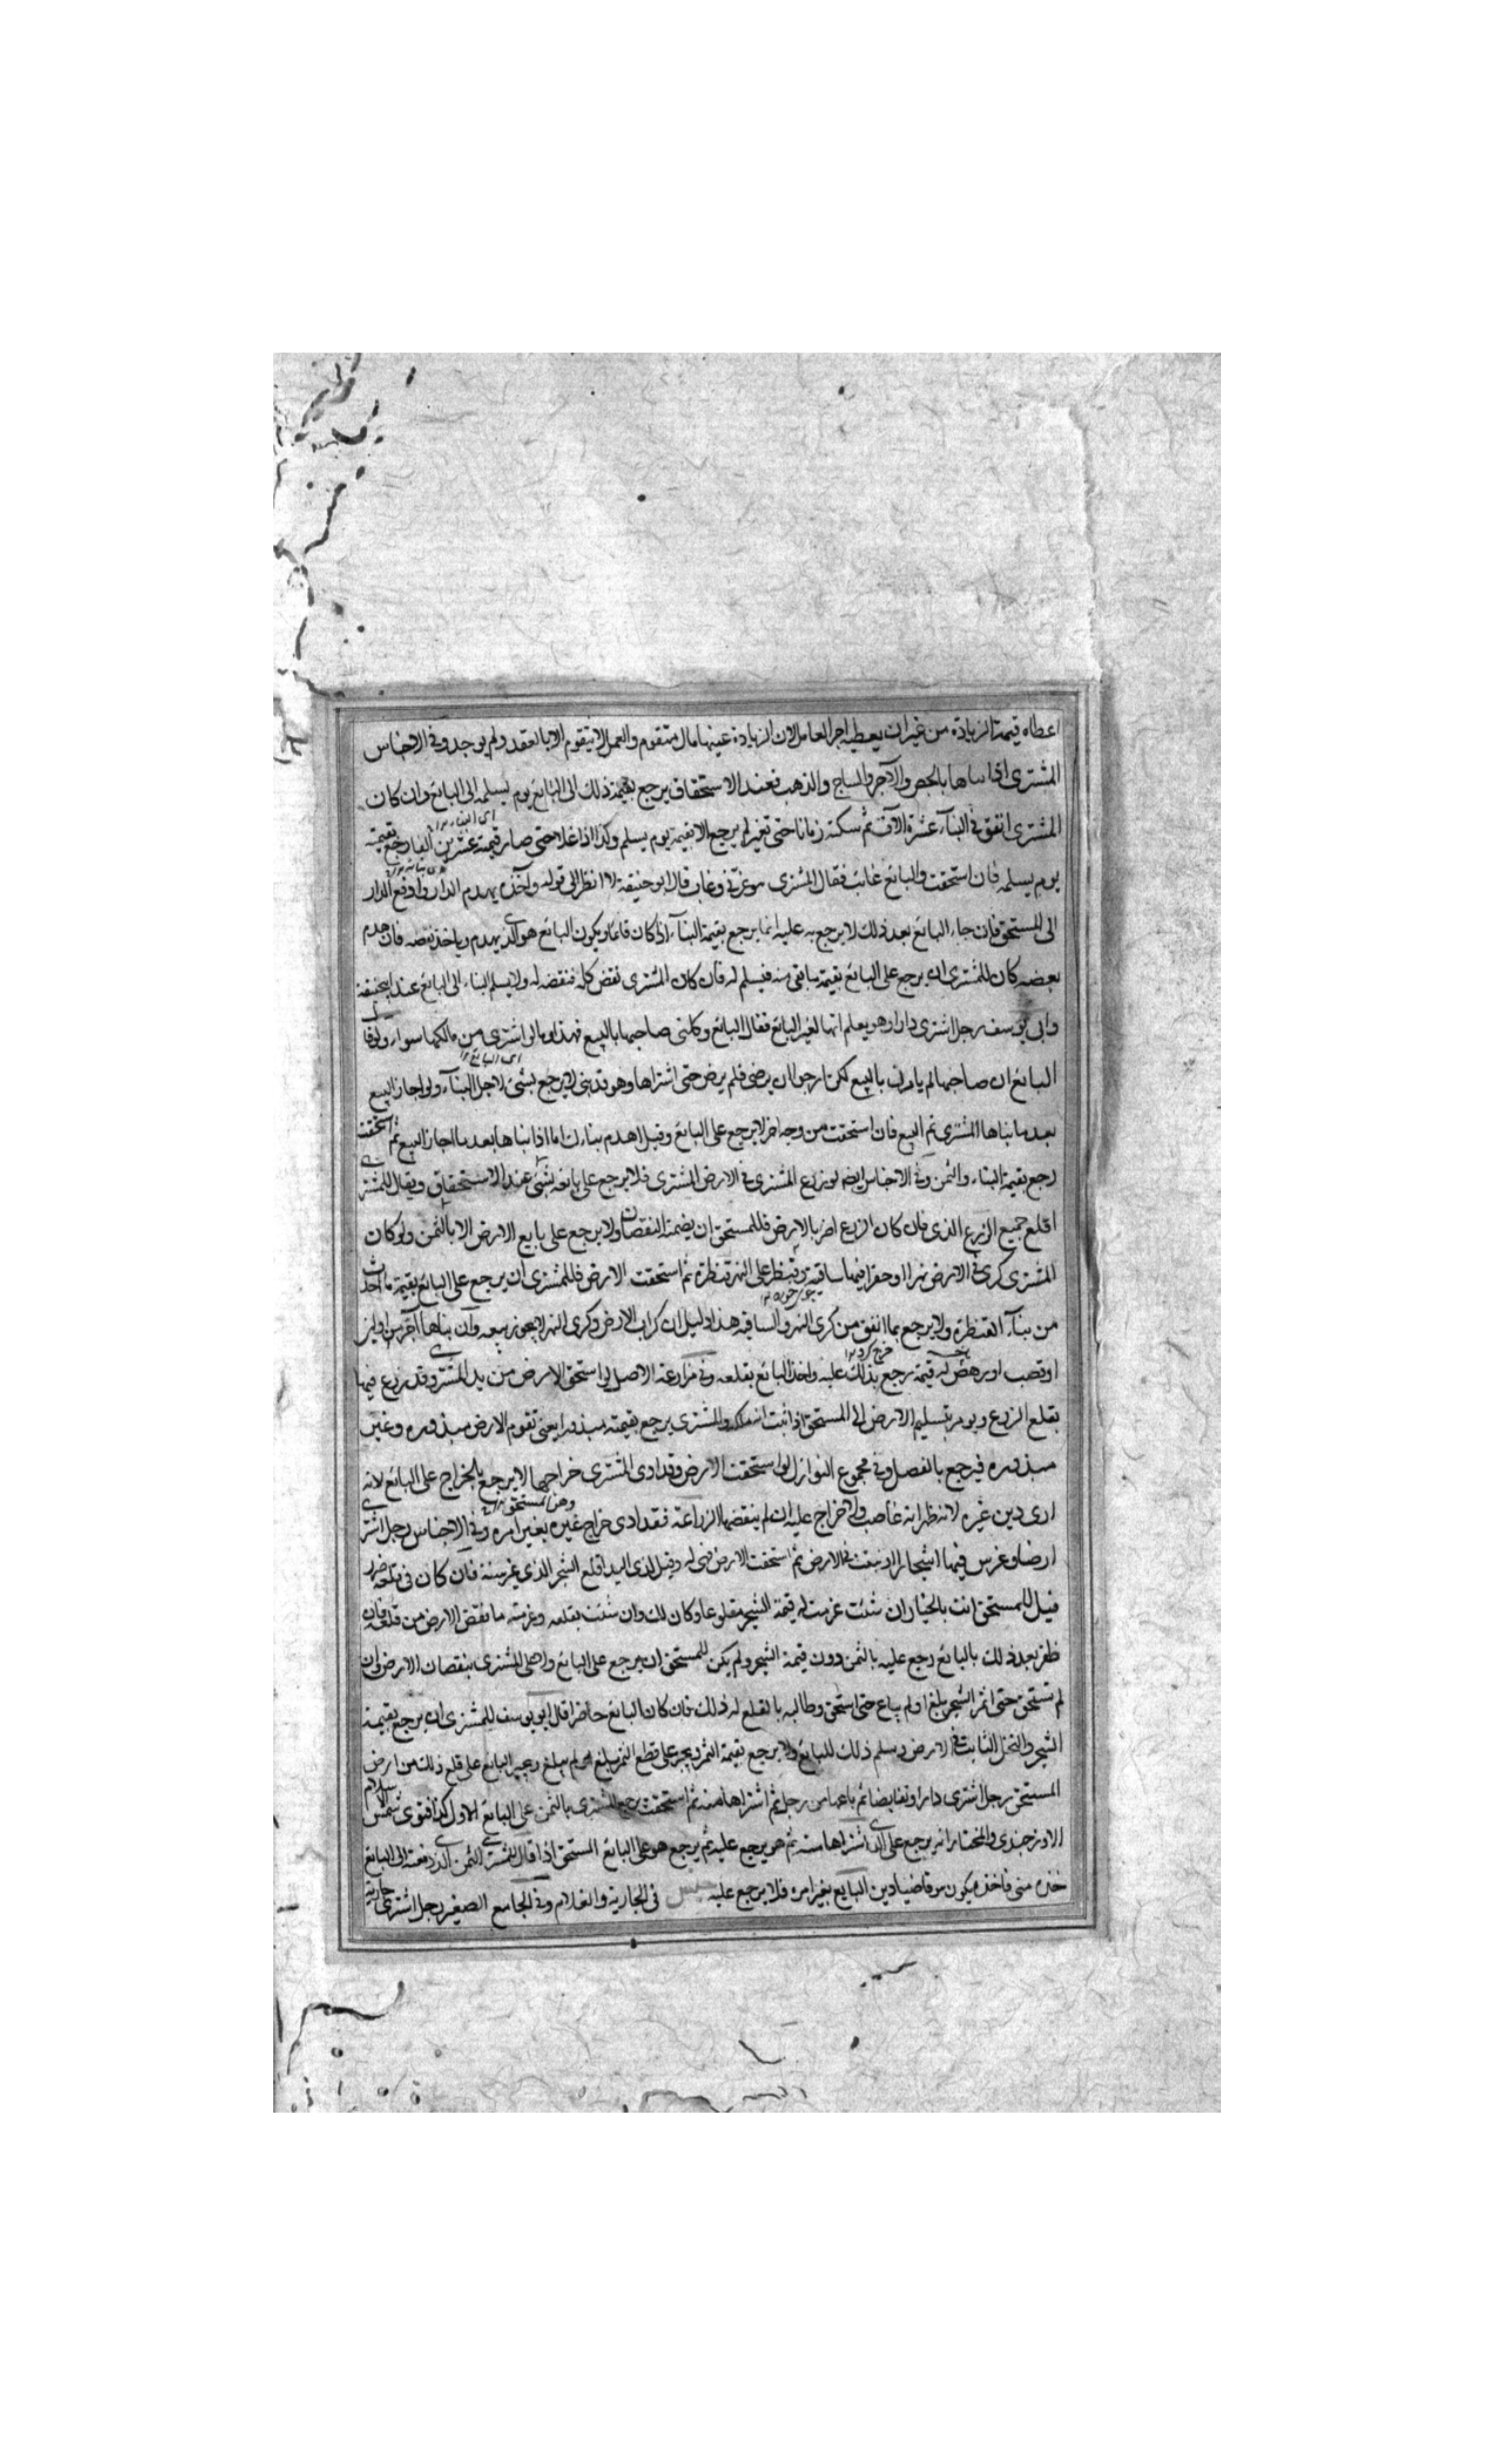 اعطاه قيمة الزيادة من غير ان يعطيه اجر العامل لان الزيادة عينها مال متقوم والعمل لا يتقوم الا بالعقد ولم يوجد وفي الاجناس
المشترى اذا بناها بالجص والآجر والساج والذهب فعند الاستحقاق يرجع بقيمة ذلك الى البائع يوم يسلمه الى البائع وان كان
المشترى انفق في البناء عشرة الاف ثم سكنه زمانا حتى تغير لم يرجع الا بقيمة يوم يسلم وكذا اذا غلا حتى صار قيمته عشرين الفا رجع بقيمته
يوم يسلمه فان استحقت والبائع غائب فقال المشترى هو غرني وغاب قال ابو حنيفة لا انظر الى قوله وآخذه يهدم الدار وادفع الدار
الى المستحق فان جاء البائع بعد ذلك لا يرجع به عليه انما يرجع بقيمة البناء اذا كان قائما ويكون البائع هو الذى يهدم وياخذ نقضه فان هدم
بعضه كان للمشترى ان يرجع على البائع بقيمة ما بقى منه فيسلم له فان كان المشترى نقض كله فنقضه له ولا يسلم البناء الى البائع عند ابيحنيفة
وابي يوسف رجل اشترى دارا وهو يعلم انها لغير البائع فقال البائع وكلنى صاحبها بالبيع فهذا وما لو اشترى من مالكها سواء ولو قال
البائع ان صاحبها لم يامرنى بالبيع لكن ارجوا ان يرضى فلم يرض حتى اشتراها وهو قد بنى لا يرجع بشئ لاجل البناء ولو اجاز البيع
بعد ما بناها المشترى تم البيع فان استحقت من وجه اخر لا يرجع على البائع وقيل اهدم بناءك اما اذا بناها بعد ما اجاز البيع ثم استحقت
رجع بقيمة البناء والثمن وفي الاجناس ايضه لو زرع المشترى في الارض المشترى فلا يرجع على بائعه بشئ عند الاستحقاق ويقال للمشترى
اقلع جميع الزرع الذى فان كان الزرع اضر بالارض فللمستحق ان يضمنه النقصان ولا يرجع على بايع الارض الا بالثمن ولو كان
المشترى كرى في الارض نهرا او حفر فيها ساقية وقنطر على النهر قنطرة ثم استحقت الارض فللمشترى ان يرجع على البائع بقيمة ما احدث
من بناء القنطرة ولا يرجع بما انفق من كرى النهر والساقية هذا دليل ان كراب الارض وكرى النهر لا يجوز بيعه وان بناها آجر من او لبن
او قصب او رهص له قيمة يرجع بذلك عليه واخذ البائع بقلعه وفي مزارعة الاصل لو استحق الارض من يد المشترى وقد زرع فيها
يقلع الزرع ويومر بتسليم الارض الى المستحق اذا ثبت انه ملكه والمشترى يرجع بقيمته مبذورا يعنى تقوم الارض مبذورة وغير
مبذورة فيرجع بالفضل وفي مجموع النوازل لو استحقت الارض وقد ادى المشترى خراجها لا يرجع بالخراج على البائع لانه
ادى دين غيره لانه ظهر انه غاصب ولا خراج عليه ان لم ينقضها الزراعة فقد ادى خراج غيره بغير امره وفي الاجناس رجل اشترى
ارضا وغرس فيها اشجارا ونبتت في الارض ثم استحقت الارض فهى له وقيل لذى اليد اقلع الشجر الذى غرسته فان كان في قلعه ضرر
قيل للمستحق انت بالخيار ان شئت غرمت له قيمة الشجر مقلوعا وكان لك وان شئت يقلعه وغرمته ما نقض الارض من قلعه فان
ظفر بعد ذلك بالبائع رجع عليه بالثمن دون قيمة الشجر ولم يكن للمستحق ان يرجع على البائع ولا على المشترى بنقصان الارض وان
لم تستحق حتى اثمر الشجر بلغ او لم يبلغ حتى استحق وطالبه بالقلع له ذلك فان كان البائع حاضرا قال ابو يوسف للمشترى ان يرجع بقيمة
الشجر والنخل الثابت في الارض ويسلم ذلك للبائع ولا يرجع بقيمة الثمر ويجبر على قطع الثمر بلغ او لم يبلغ ويجبر البائع على قلع ذلك من ارض
المستحق رجل اشترى دارا وتقابضا ثم باعها من رجل ثم اشتراها منه ثم استحقت يرجع المشترى بالثمن على البائع الاول كذا فتوى شمس الاسلام
الاوزجندى والمختار انه يرجع على الذى اشتراها منه ثم هو يرجع عليه ثم يرجع هو على البائع المستحق اذا قال للمشترى الثمن الذى دفعته الى البائع
خذه منى فاخذه يكون هو قاضيا دين البايع بغير امره فلا يرجع عليه جنس في الجارية والغلام وفي الجامع الصغير رجل اشترى جارية